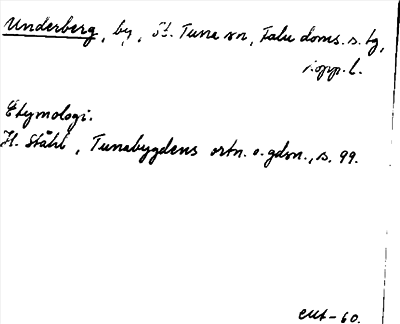 Underberg, by, St. Tuna sn, Falu doms. s. tg,
Kopp. l.
Etymologi.
H. Ståhl, Tunabygdens ortn. o. gdsn., s. 99.
-60.